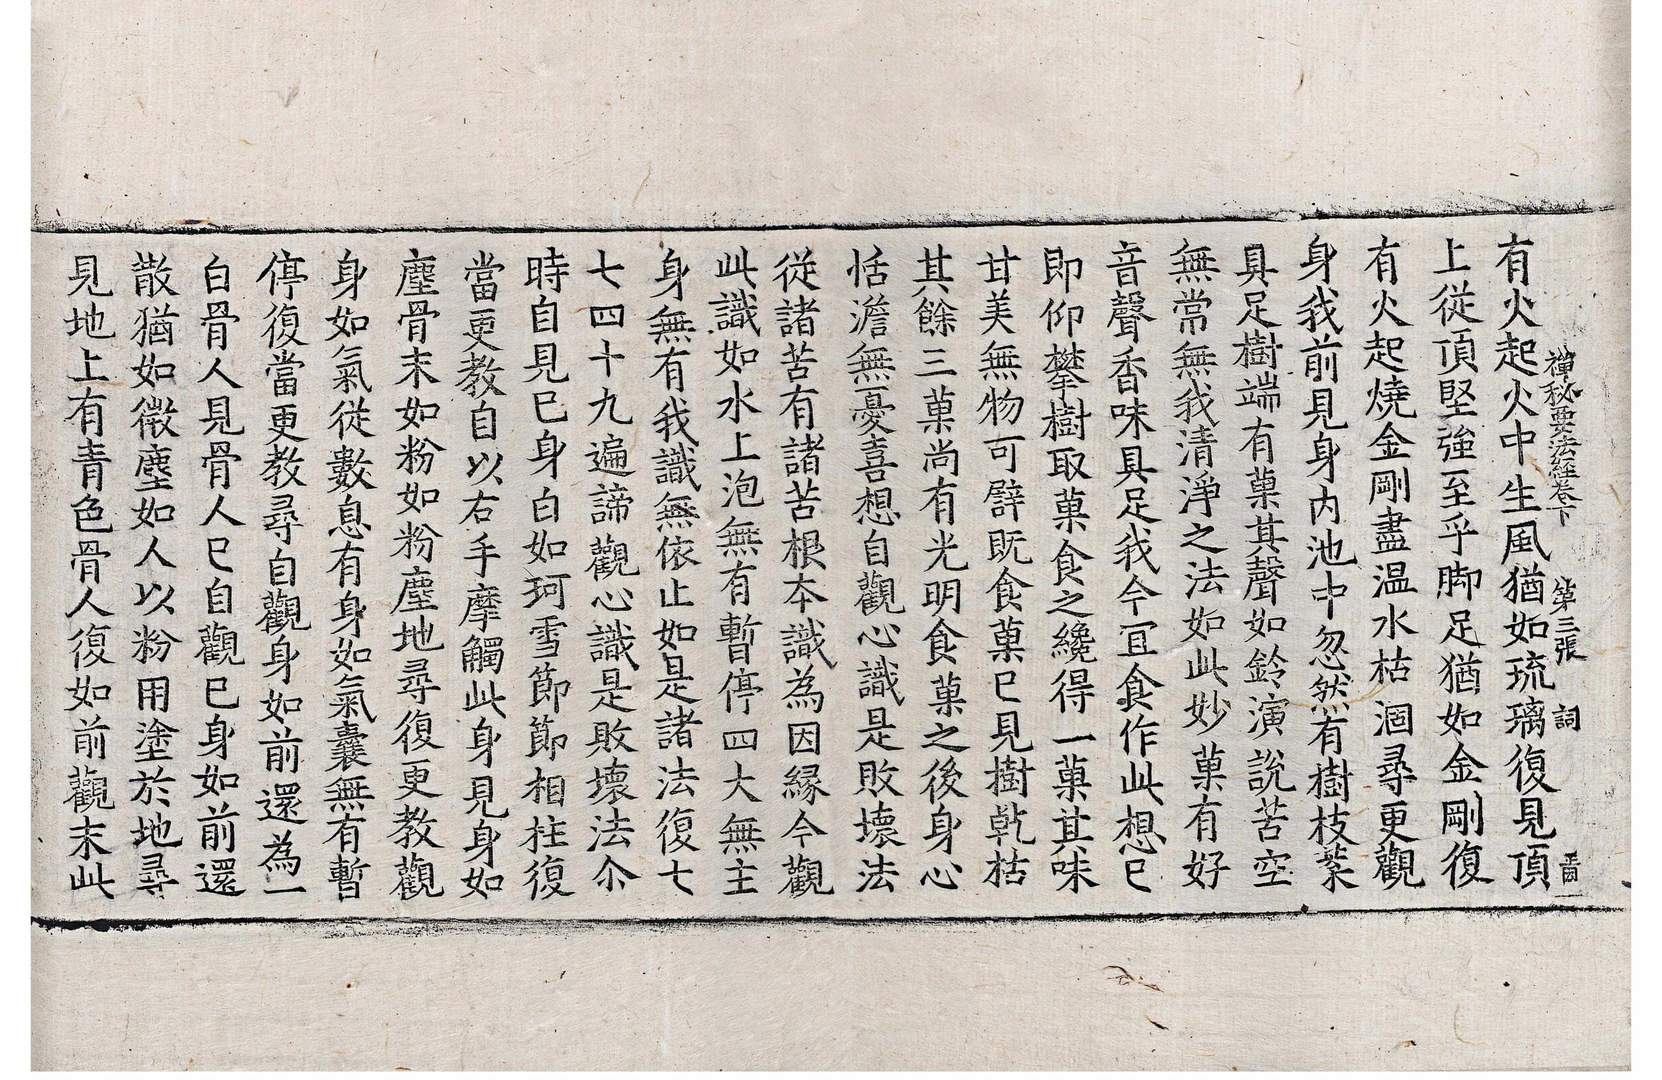 禪秘要法經卷下 第三張 詞
有火起火中生風猶如琉璃復見頂
上從頂堅強至乎脚足猶如金剛復
有火起燒金剛盡溫水枯涸尋更觀
身我前見身内池中忽然有樹枝葉
具足樹端有菓其聲如鈴演說苦空
無常無我清淨之法如此妙菓有好
音聲香味具足我今宜食作此想已
即仰攀樹取菓食之纔得一菓其味
甘美無物可譬既食菓已見樹乾枯
其餘三菓尚有光明食菓之後身心
恬澹無憂喜想自觀心識是敗壞法
從諸苦有諸苦根本識為因緣今觀
此識如水上泡無有暫停四大無主
身無有我識無依止如是諸法復七
七四十九遍諦觀心識是敗壞法尒
時自見已身白如珂雪節節相柱復
當更教自以右手摩觸此身見身如
塵骨末如粉如粉塵地尋復更教觀
身如氣從數息有身如氣囊無有暫
停復當更教尋自觀身如前還為一
白骨人見骨人已自觀已身如前還
散猶如微塵如人以粉用塗於地尋
見地上有青色骨人復如前觀末此